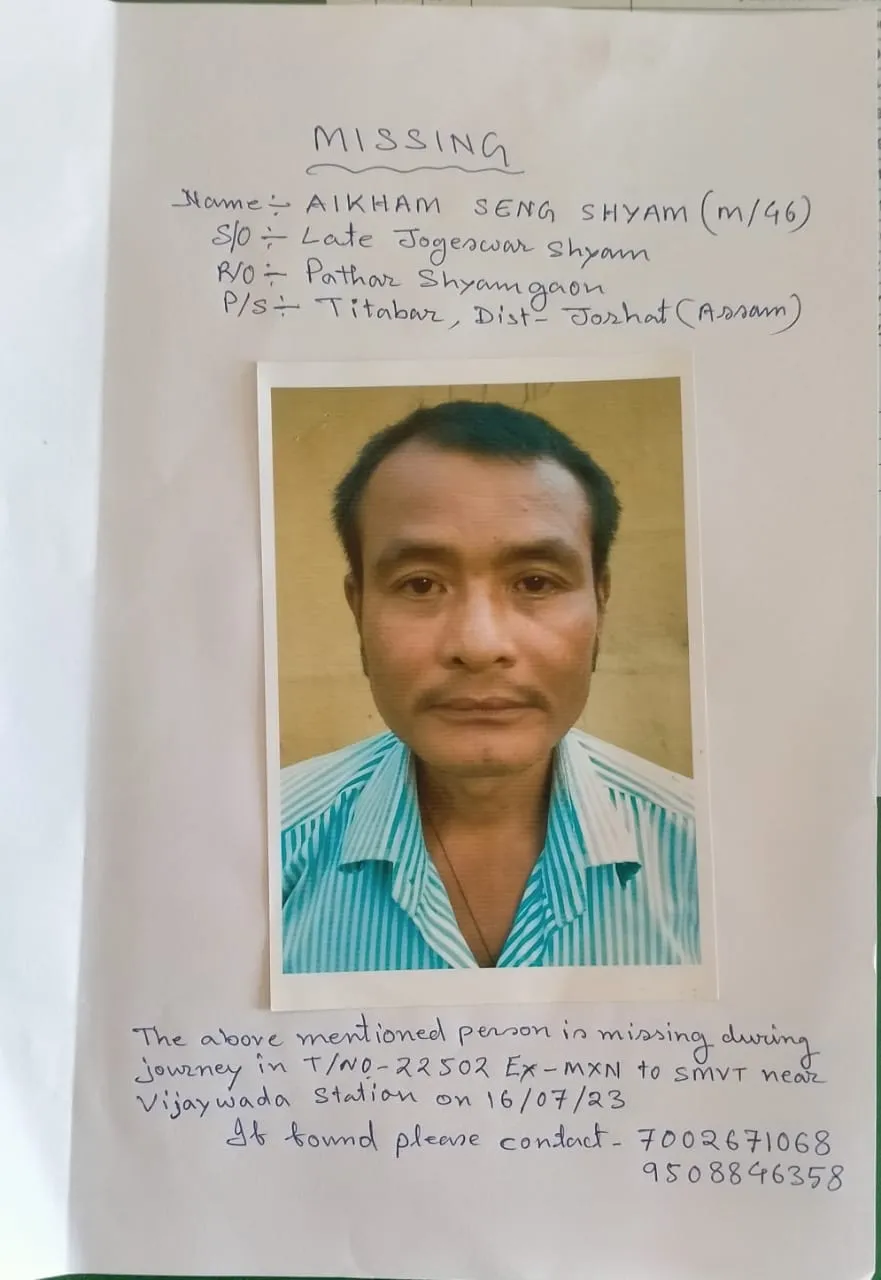 MISSING
Name:- AIKHAM SENG SHYAM (M/46)
S/O :- Late Jogeswar Shyam
R/O :- Pathar Shyamgaon
P/S :- Titabar, Dist- Jorhat (Assam)
The above mentioned person is missing during
journey in T/NO-22502 Ex-MXN to SMVT near
Vijaywada Station on 16/07/23
If found please contact- 7002671068
9508846358